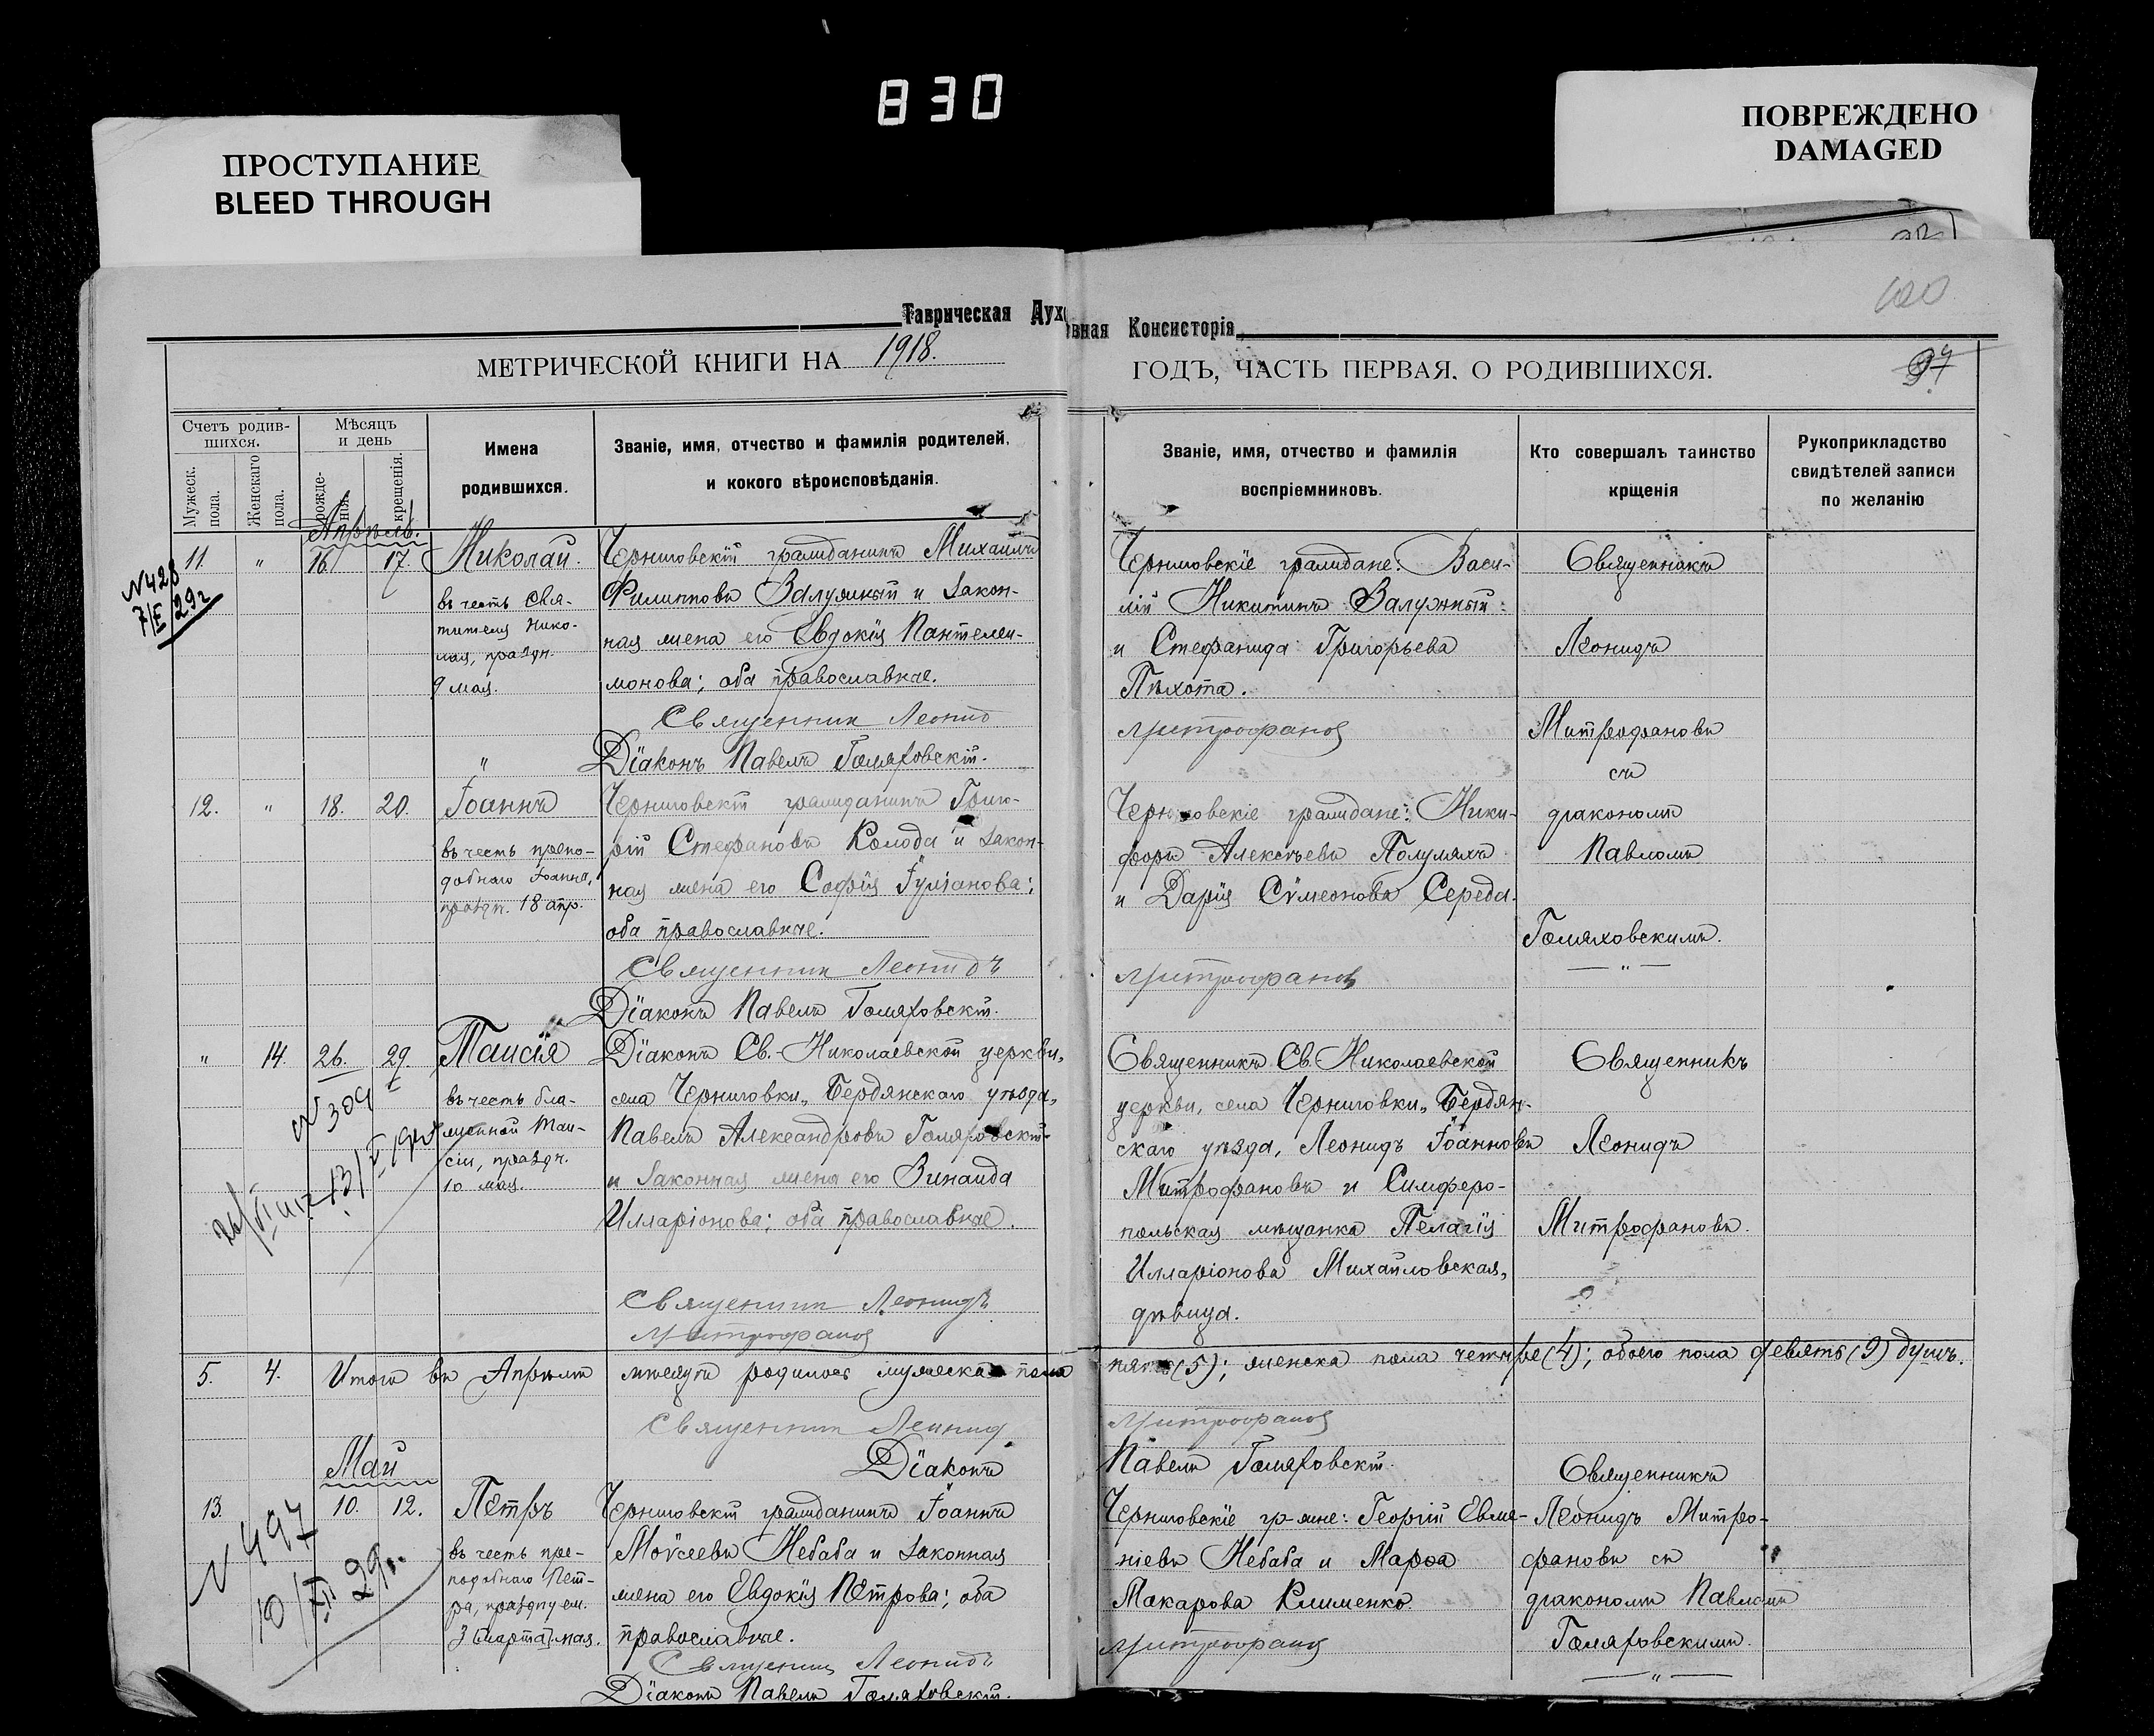 830
ПРОСТУПАНИЕ
BLEED THROUGH
ПОВРЕЖДЕНО
DAMAGED
Таврическая Духовная Консисторія
МЕТРИЧЕСКОЙ КНИГИ НА 1918.
ГОДЪ, ЧАСТЬ ПЕРВАЯ, О РОДИВШИХСЯ.
100
Счетъ родив-
шихся.
Мужеск.
пола.
Женскаго
пола.
Мѣсяцъ
и день
рожде-
нія.
крещенія.
Имена
родившихся.
Званіе, имя, отчество и фамилія родителей,
и кокого вѣроисповѣданія.
Званіе, имя, отчество и фамилія
воспріемниковъ.
Кто совершалъ таинство
крщенія
Рукоприкладство
свидѣтелей записи
по желанію
Апрѣль.
11. " 16. 17. Николай.
въ честь Свя-
тителя Нико-
лая, праздн.
9 мая.
N428
7/II 29г
Черниговскій гражданинъ Михаилъ
Филипповъ Залужный и закон-
ная жена его Евдокія Пантелеи-
монова; оба православные.
Священник Леонид
Діаконъ Павелъ Гомяховскій.
Черниговскіе граждане: Васи-
лій Никитинъ Залужный
и Стефанида Григорьева
Пѣхота.
Митрофанов
Священникъ
Леонидъ
Митрофановъ
съ
діакономъ
Павломъ
Гомяховскимъ.
12. " 18. 20. Іоаннъ
въ честь препо-
добнаго Іоанна,
праздн. 18 апр.
Черниговскій гражданинъ Григо-
рій Стефановъ Колода и закон-
ная жена его Софія Іуліанова;
оба православные.
Священник Леонидъ
Діаконъ Павелъ Гомяховскій.
Черниговскіе граждане: Ники-
форъ Алексѣевъ Полумяхъ
и Дарія Сѵмеонова Середа.
Митрофанов
" 14. 26. 29. Таисія
въ честь бла-
женной Таи-
сіи, праздн.
10 мая.
N 309
Діаконъ Св.-Николаевской церкви,
села Черниговки, Бердянскаго уѣзда,
Павелъ Александровъ Гомяховскій
и законная жена его Зинаида
Илларіонова; оба православные.
Священник Леонидъ
Митрофанов
Священникъ Св. Николаевской
церкви, села Черниговки, Бердян-
скаго уѣзда, Леонидъ Іоанновъ
Митрофановъ и Симферо-
польская мѣщанка Пелагія
Илларіонова Михайловская,
дѣвица.
Священникъ
Леонидъ
Митрофановъ.
5. 4. Итого въ Апрѣлѣ мѣсяцѣ родилось мужеска пола пять (5); женска пола четыре (4); обоего пола девять (9) душъ.
Священник Леонид Митрофанов
Діаконъ Павелъ Гомяховскій.
Май
13. 10. 12. Петръ
въ честь пре-
подобнаго Пет-
ра, празднуем.
3 [марта] мая.
N 497
10/XII 29г.
Черниговскій гражданинъ Іоаннъ
Моѵсеевъ Небаба и законная
жена его Евдокія Петрова; оба
православные.
Священник Леонидъ
Діаконъ Павелъ Гомяховскій.
Черниговскіе гр-жане: Георгій Евме-
ніевъ Небаба и Марѳа
Макарова Клименко.
Митрофанов
Священникъ
Леонидъ Митро-
фановъ съ
діакономъ Павломъ
Гомяховскимъ.